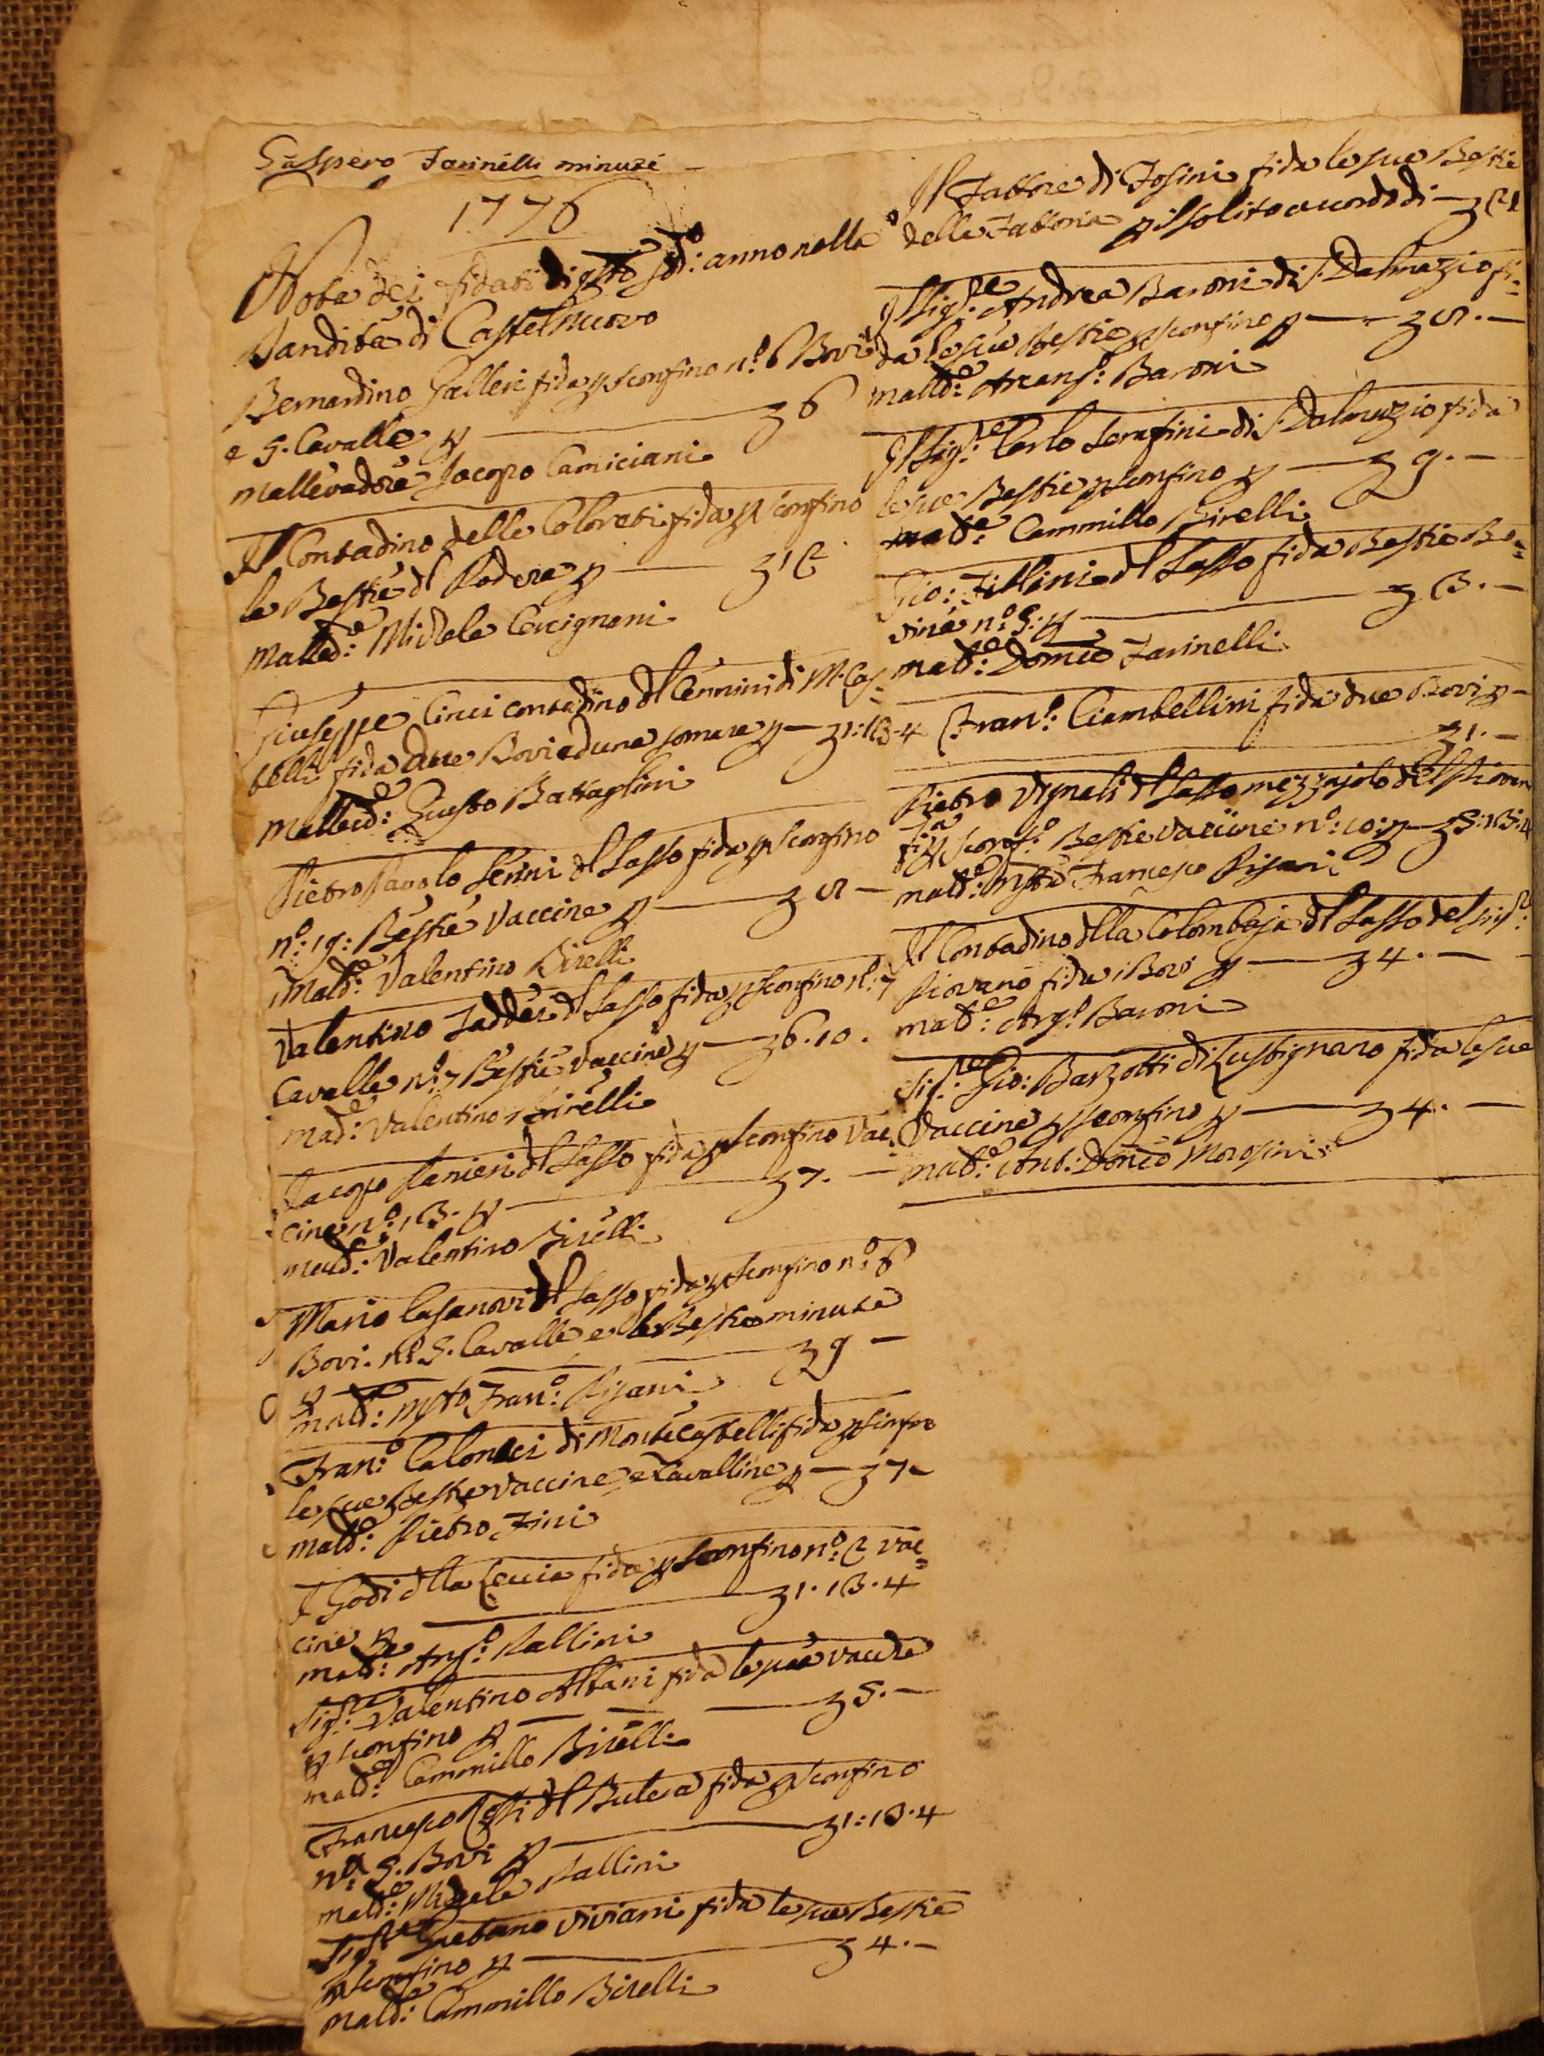 Gaspero Farinelli minuze
1776
Nota dei fidati di qsto sod:o anno nella
Bandita di Castelnuovo
Bernardino Galleri fida p sconfino n:o 6 Bovi
e 5. Cavalle p — 6
Mallevadore Jacopo Camiciani
Il Contadino delle Colorete fida p sconfino
le Bestie dl Podere p — 12
Malled:e Michele Cercignani
Giuseppe Cinci contadino dl Cennini di M. Cas=
telli fida due Bovi ed una somara p — 1:13.4
Mallevd:e Giusto Battaglini
Pietro Pavolo Senni dl Sasso fida p sconfino
n:o 19: Bestie Vaccine p — 5 —
Mald:e Valentino Birelli
Valentino Taddei dl Sasso fida p sconfino n: 7
Cavalle n:o 7 Bestie vaccine p — 6.10.
Mad:e Valentino Birelli
Jacopo Ranieri dl Sasso fida p sconfino Vac=
cine n:o 13. p — 7. —
Mald:e Valentino Birelli
Mario Casanovi dl Sasso fida p sconfino n:o 6
Bovi. n:o 5. Cavalle e le Bestie minute
p — 9 —
Mald:e Mstro Fran:o Pisani
Fran:o Calonaci di Monte Castelli fida p sconfino
le sue Bestie vaccine e Cavalline p — 7 —
Mald:e Pietro Fini
I Godi dlla Leccia fida p sconfino n:o 2 vac=
cine p — 1.13.4
Mald:e Ang:o Pallini
Sig:re Valentino Albani fida le sue vacche
p sconfino p — 5. —
Mald:e Cammillo Birelli
Francesco dl Bulera fida p sconfino
n:o 5. Bovi p — 1:13.4
Mald:e Michele Pallini
Sig:re Gaetano Viviani fida le sue Bestie
p sconfino p — 4. —
Mald:e Cammillo Birelli
Il Fattore di Fosini fida le sue Bestie
della Fattoria p il solito accordo di — 21
Il Sig:re Andrea Baroni di S. Dalmazio fi=
da le sue Bestie p sconfino p — 5. —
Malld:e Arcang:o Baroni
Il Sig:re Carlo Serafini di S. Dalmazio fida
le sue Bestie p sconfino p — 9. —
Mad:e Cammillo Birelli
Gio: Fillini dl Sasso fida Bestie Bo=
vine n:o 9: p — 3. —
Mad:e Dom:co Farinelli
Fran:o Ciambellini fida due Bovi p —
1. —
Pietro Vignali dl Sasso mezzajolo del Piovan
fida p sconf:o Bestie vaccine n:o 10: p — 5:13:4
Mald:e Mstro Francesco Pisani
Il Contadino dlla Colombaja dl Sasso del Sig:re
Piovano fida i Bovi p — 4. —
Mad:e Ang:o Baroni
Sig:re Gio: Barzotti di Lustignano fida le sue
Vaccine p sconfino p — 4. —
Mad:e Ant: Dom:co Morosini